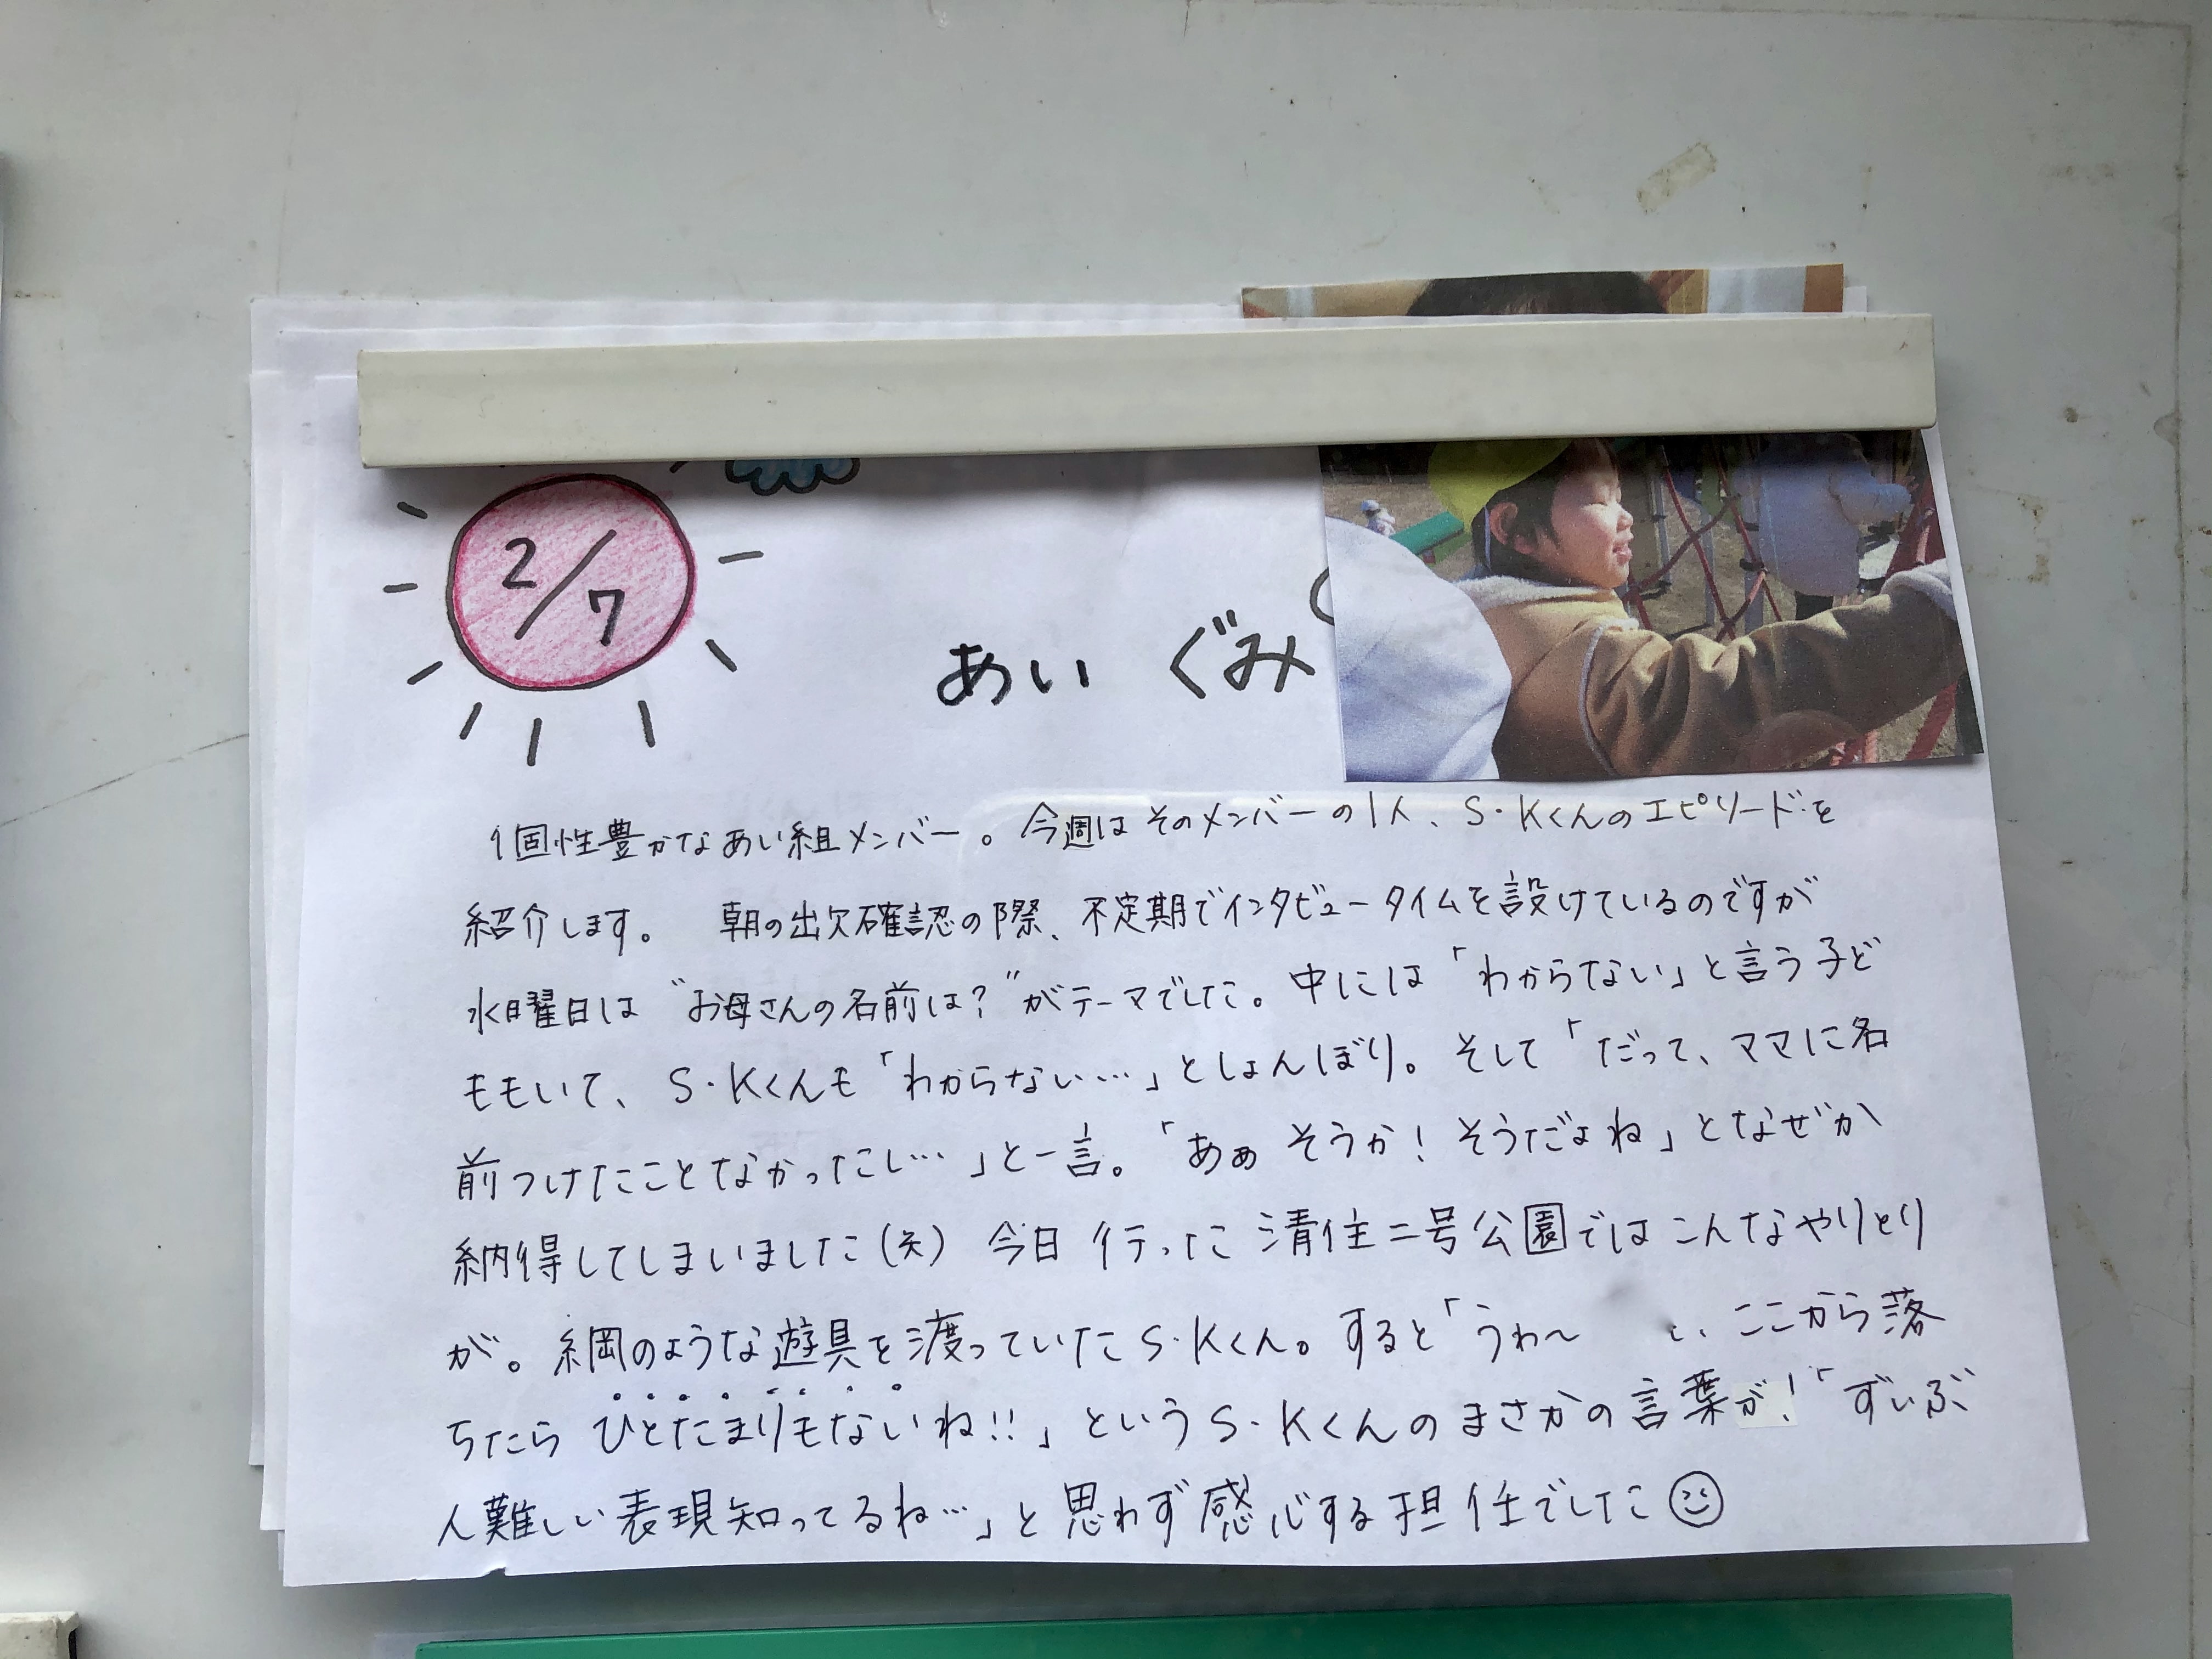 2/7
あい ぐみ
個性豊かなあい組メンバー。今週はそのメンバーの1人、S・Kくんのエピソードを
紹介します。 朝の出欠確認の際、不定期でインタビュータイムを設けているのですが
水曜日は"お母さんの名前は?"がテーマでした。中には「わからない」と言う子ど
ももいて、S・Kくんも「わからない…」としょんぼり。そして「だって、ママに名
前つけたことなかったし…」と一言。「あぁ そうか!そうだよね」となぜか
納得してしまいました(笑) 今日 行った 清住二号公園ではこんなやりとり
が。網のような遊具を渡っていたS・Kくん。すると「うわ〜 ここから落
ちたら ひとたまりもないね!!」というS・Kくんのまさかの言葉が!「ずいぶ
ん難しい表現知ってるね…」と思わず感心する担任でした